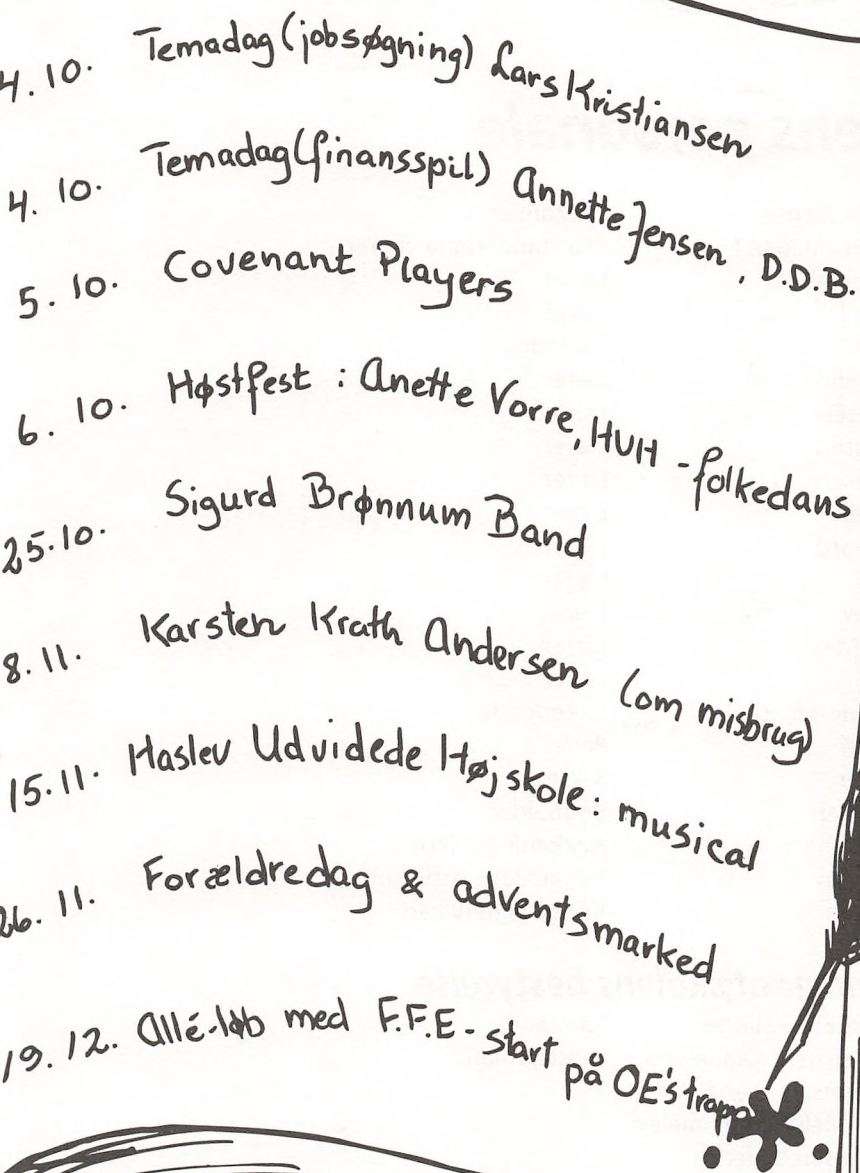 4.10. Temadag (jobsøgning) Lars Kristiansen
4. 10. Temadag (finansspil) Annette Jensen, D.D.B.
5. 10. Covenant Players
6. 10. Høstfest : Anette Vorre, HUH - folkedans
25.10. Sigurd Brønnum Band
8. 11. Karsten Krath Andersen (om misbrug)
15.11. Haslev Udvidede Højskole: musical
26. 11. Forældredag & adventsmarked
19. 12. Allé-løb med F.F.E - start på OE's trapp